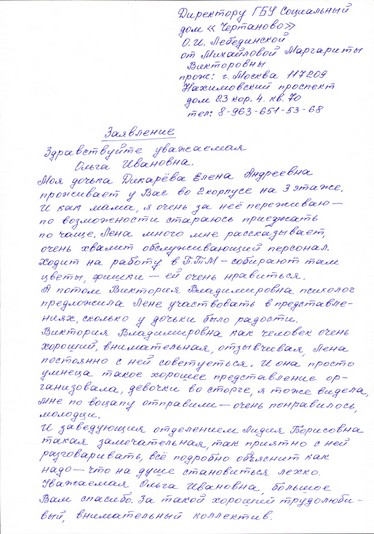 Директору ГБУ Социальный
дом «Чертаново»
О.И. Лебединской
от Михайловой Маргариты
Викторовны
прож: г. Москва 117209
Нахимовский проспект
дом 23 кор. 4. кв. 70
тел: 8-963-651-53-68
Заявление
Здравствуйте уважаемая
Ольга Ивановна.
Моя дочька Дикарёва Елена Андреевна
проживает у Вас во 2 корпусе на 3 этаже.
И как мама, я очень за неё переживаю—
по возможности стараюсь приезжать
по чаще. Лена много мне рассказывает,
очень хвалит обслуживающий персонал.
Ходит на работу в П.Т.М – собирают там
цветы, фишки – ей очень нравиться.
А потом Виктория Владимировна психолог
предложила Лене участвовать в представле-
ниях, сколько у дочьки было радости.
Виктория Владимировна как человек очень
хороший, внимательная, отзывчивая, Лена
постоянно с ней советуеться. И она просто
умнеца такое хорошее представление ор-
ганизовала, девочки во сторге, я тоже видела,
мне по воцапу отправили – очень понравилось,
молодцы.
И заведующия отделением Лидия Борисовна
такая замечательная, так приятно с ней
разговаривать, всё подробно объяснит как
надо – что на душе становиться лехко.
Уважаемая Ольга Ивановна, большое
Вам спасибо. За такой хороший трудолюби-
вый, внимательный коллектив.